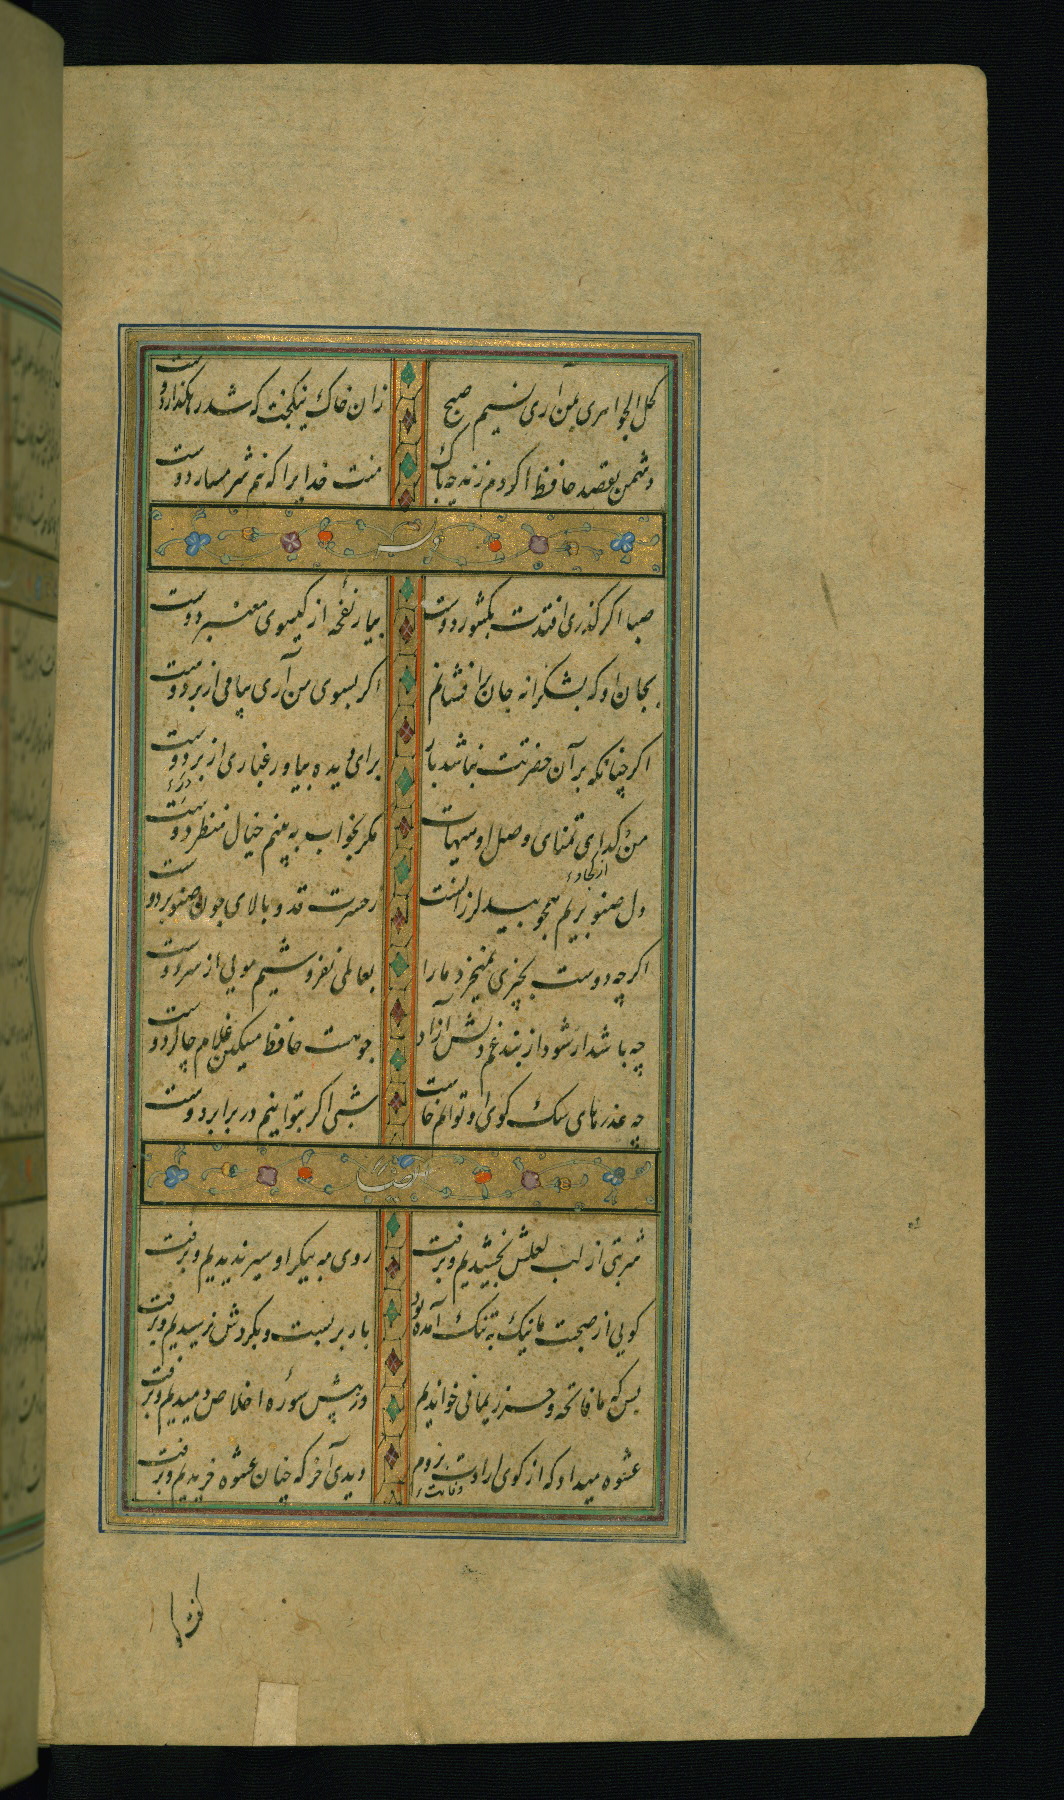 کحل الجواهری بمن آر ای نسیم صبح زان خاک نیکبخت که شد رهکذار دوست
دشمن بقصد حافظ اکر دم زند چه باک منت خدایرا که نیم شرمسار دوست
وله
صبا اکر کذری افتدت بکشور دوست بیار نفحهٔ از کیسوی معنبر دوست
بجان او که بشکرانه جان برافشانم اکر بسوی من آری پیامی از بر دوست
اکر چنانکه بر آن حضرتت نباشد بار برای دیده بیاور غباری از بر دوست
در
من کدای تمنای وصل او هیهات مکر بخواب به بینم خیال منظر دوست
از کجا و
دل صنوبریم همچو بید لرزانست ز حسرت قد و بالای چون صنوبر دوست
اکر چه دوست بچیزی نمیخرد ما را بعالمی نفروشیم مویی از سر دوست
چه باشد ار شود از بند غم دلش آزاد چو هست حافظ مسکین غلام چاکر دوست
چه عذرهای سک کوی او توانم خاست شبی اکر بتوانیم در برابر دوست
ایضا
شربتی از لب لعلش نچشیدیم و برفت روی مه پیکر او سیر ندیدیم و برفت
کویی از صحبت ما نیک به تنک آمده بود بار بربست و بکردش نرسیدیم و برفت
بس که ما فاتحه و حرز یمانی خواندیم وز پیش سورهٔ اخلاص دمیدیم و برفت
عشوه میداد که از کوی ارادت نروم دیدی آخر که چنان عشوه خریدیم و برفت